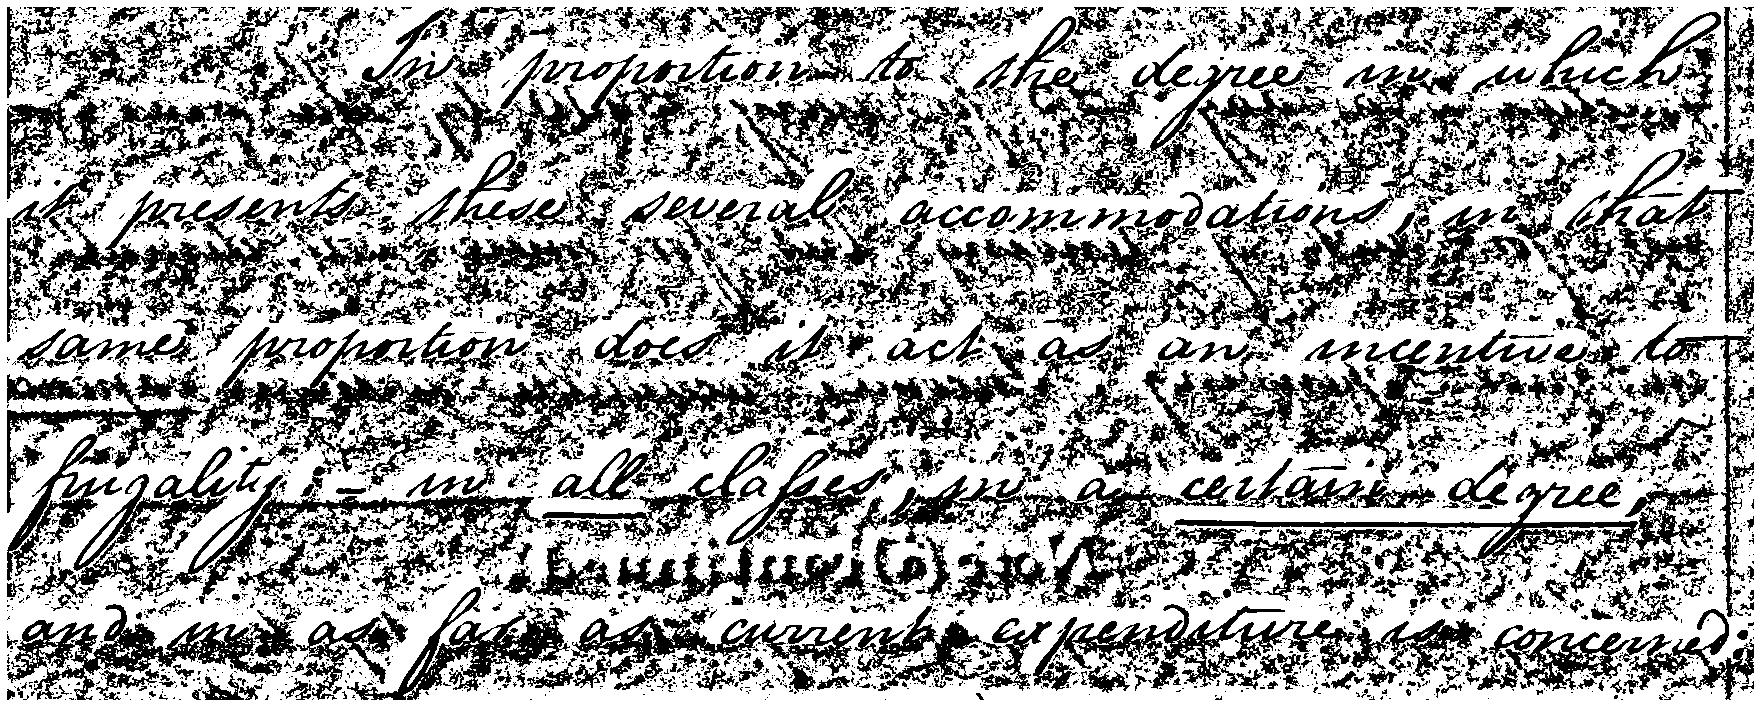 In proportion to the degree in which
it presents these several accommodations, in that
same proportion does it act as an incentive to
frugality; - in all classes, in a certain degree,
and in as far as current expenditure is concerned: